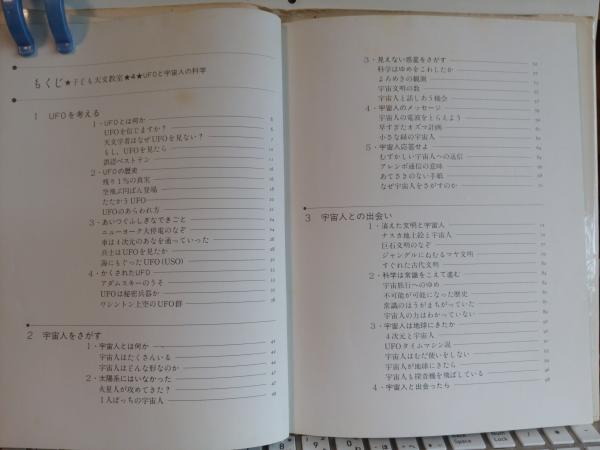 もくじ★子ども天文教室★4★UFOと宇宙人の科学
1 UFOを考える
1・UFOとは何か
UFOを信じますか？
天文学者はなぜUFOを見ない？
もし、UFOを見たら
誤認ベストテン
2・UFOの歴史
残り1％の真実
空飛ぶ円ばん登場
たたかうUFO
UFOのあらわれ方
3・あいつぐふしぎなできごと
ニューヨーク大停電のなぞ
車は4次元のあなを通っていった
兵士はUFOを見たか
海にもぐったUFO(USO)
4・かくされたUFO
アダムスキーのうそ
UFOは秘密兵器か
ワシントン上空のUFO群
2 宇宙人をさがす
1・宇宙人とは何か
宇宙人はたくさんいる
宇宙人はどんな形なのか
2・太陽系にはいなかった
火星人が攻めてきた？
1人ぼっちの宇宙人
3・見えない惑星をさがす
科学はゆめをこわしたか
よろめきの観測
宇宙文明の数
宇宙人と話しあう機会
4・宇宙人のメッセージ
宇宙人の電波をとらえよう
早すぎたオズマ計画
小さな緑の宇宙人
5・宇宙人応答せよ
むずかしい宇宙人への送信
アレシボ通信の意味
あてさきのない手紙
なぜ宇宙人をさがすのか
3 宇宙人との出会い
1・遠えた文明と宇宙人
ナスカ地上絵と宇宙人
巨石文明のなぞ
ジャングルにねむるマヤ文明
すぐれた古代文明
2・科学は常識をこえて進む
宇宙旅行へのゆめ
不可能が可能になった歴史
常識のほうがまちがっていた
宇宙人の力はわかっていない
3・宇宙人は地球にきたか
4次元と宇宙人
UFOタイムマシン説
宇宙人はむだ使いをしない
宇宙人が地球にきたら
宇宙人も探査機を飛ばしている
4・宇宙人と出会ったら